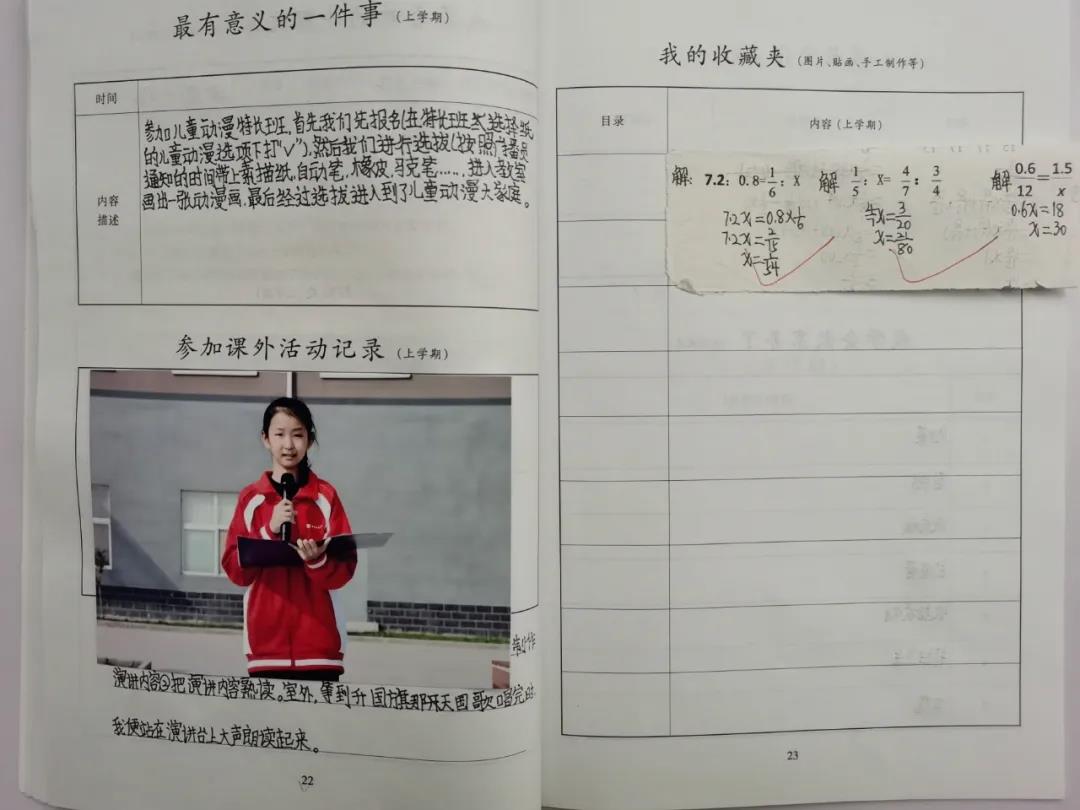 最有意义的一件事（上学期）
时间
内容
描述
参加儿童动漫特长班,首先我们先报名(在特长班 选择纸
的儿童动漫选项下打"√"),然后我们进行选拔(按照广播员
通知的时间带上素描纸,自动笔,橡皮,马克笔……,进入教室
画出一张动漫画,最后经过选拔进入到了儿童动漫大家庭。
参加课外活动记录（上学期）
制作
演讲内容②把演讲内容熟读。室外,等到升国旗那天国歌唱完时
我便站在演讲台上大声朗读起来。
22
我的收藏夹（图片、贴画、手工制作等）
目录
内容（上学期）
解: 7.2：0.8=1/6：x
7.2x=0.8×1/6
7.2x=2/15
x=1/54
解 1/5：x=4/7：3/4
4/7x=3/20
x=21/80
解 0.6/12=1.5/x
0.6x=18
x=30
23